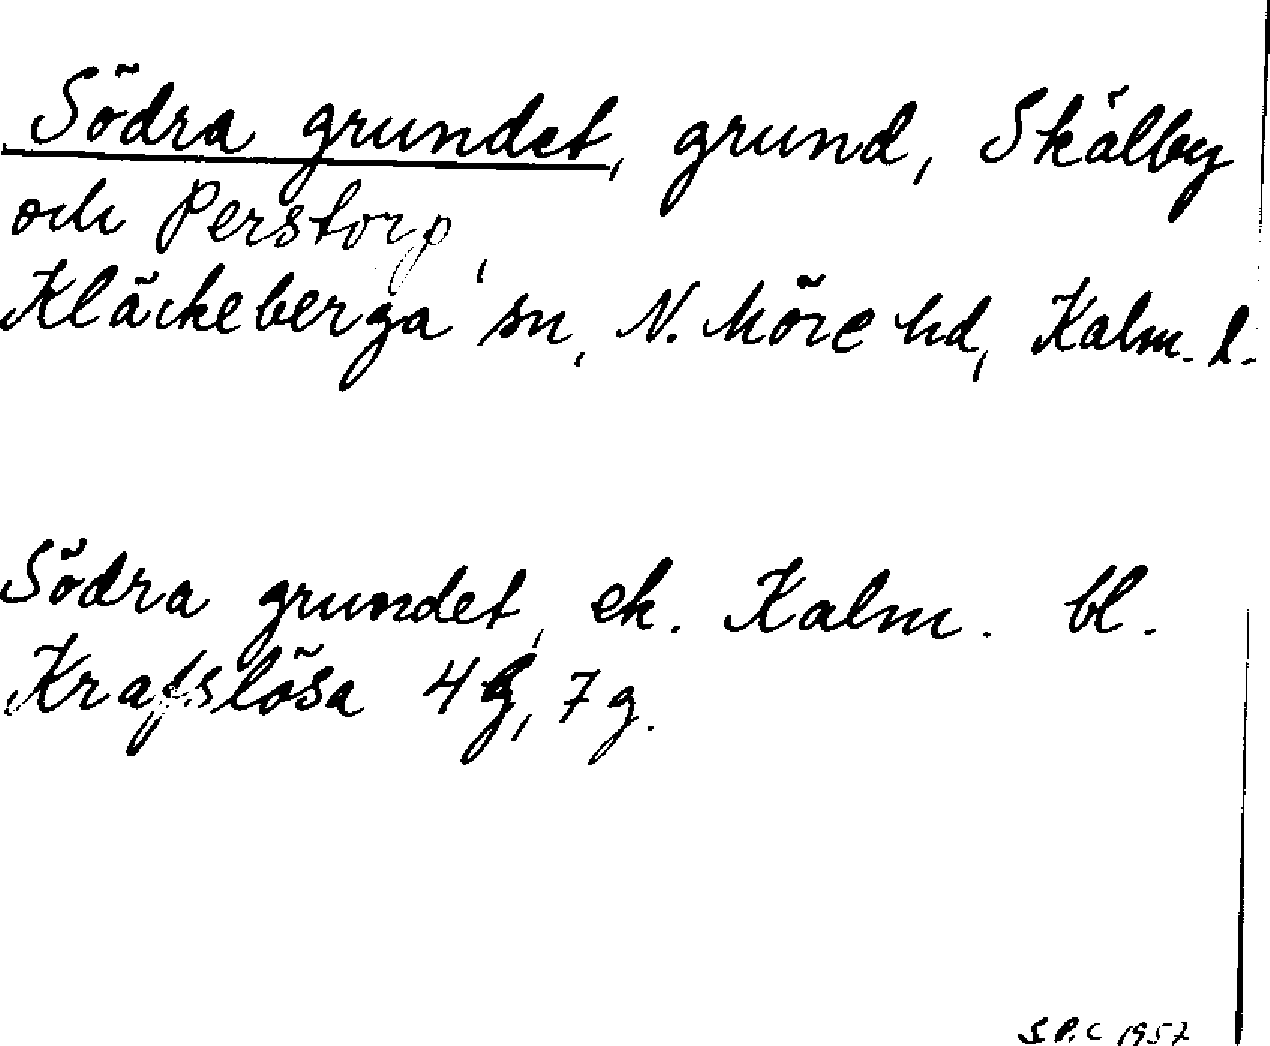 Södra grundet, grund, Skälby
och Perstorp,
Kläckeberga sn, N. Möre hd, Kalm. l.
Södra grundet, ek. Kalm. bl.
Krafslösa 4g, 7g.
S.P.C 1957